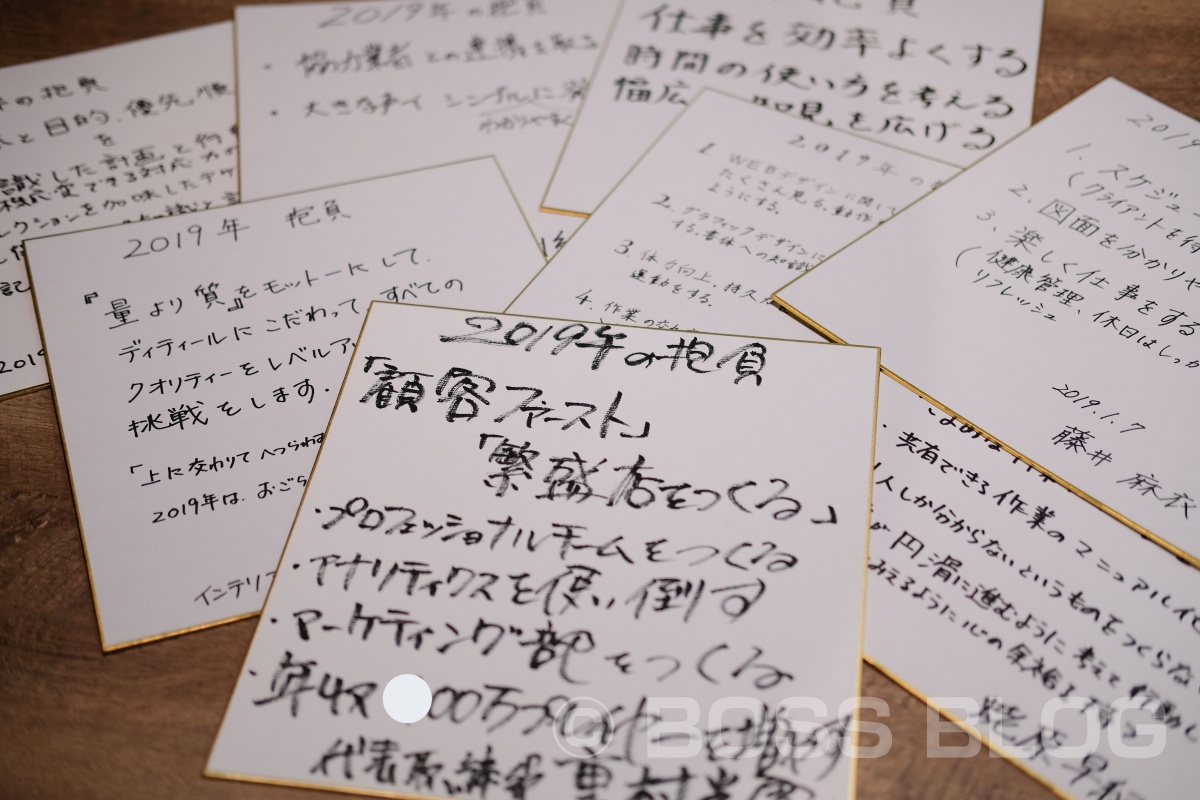 年の抱負
と目的、優先順
を
識した計画と行
レクションを加味したデザ
2019
2019年の抱負
・協力業者との連携を取る
・大きな声で シンプルに
わかりやすく
抱負
仕事を効率よくする
時間の使い方を考える
幅広 知見を広げる
2019年の
1. WEBデザインに関して
たくさん見る。動作
ようにする。
2. グラフィックデザインに
する。書体への知識
3. 体力向上、持久力
運動をする。
4. 作業の
2019
1. スケジュ
(クライアントを待
2. 図面を分かりや
3、楽しく仕事をする
(健康管理、休日はしっか
リフレッシュ
2019.1.7
藤井 麻衣
2019年 抱負
『量より質』をモットーにして、
ディティールにこだわって、すべての
クオリティーをレベルア
挑戦をします。
「上に交わりてへつらわず
2019年は、おごら
インテリア
2019年の抱負
「顧客ファースト」
「繁盛店をつくる」
・プロフェッショナルチームをつくる
・アナリティクスを使い倒す
・マーケティング部をつくる
・年収 00万プレイヤーを増やす
代表取締役
・共有できる作業のマニュアル化
人しか分からないというものをつくらない
が円滑に進むように考えて行動し
みえるように心の余裕を
© BOSS BLOG